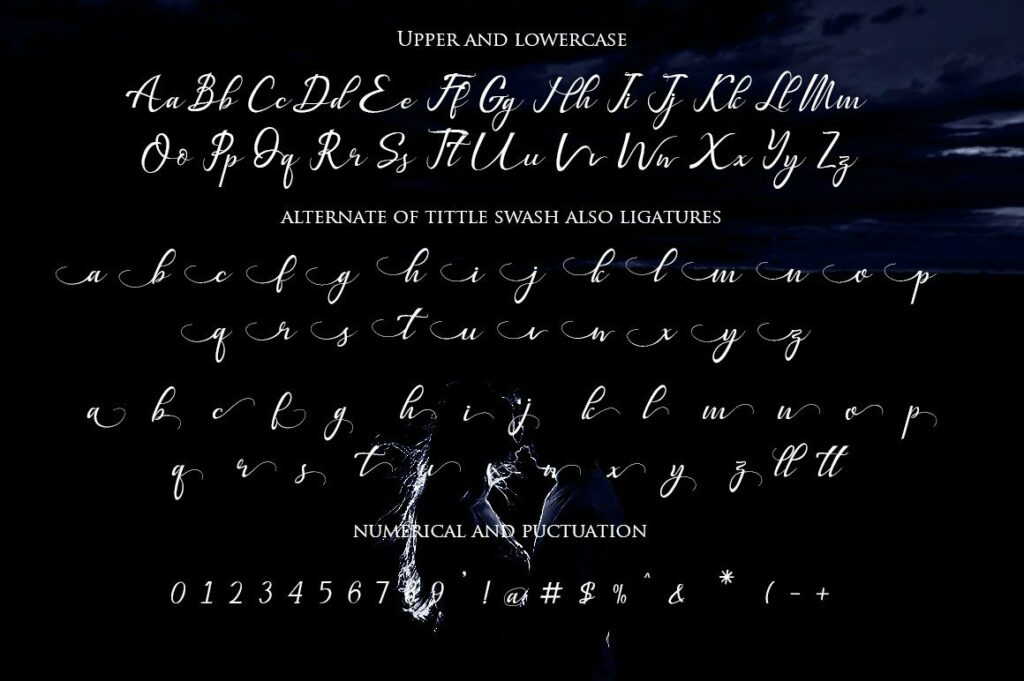 Upper and lowercase
Aa Bb Cc Dd Ee Ff Gg Hh Ii Jj Kk Ll Mm
Oo Pp Qq Rr Ss Tt Uu Vv Ww Xx Yy Zz
alternate of tittle swash also ligatures
a b c f g h i j k l m n o p
q r s t u v w x y z
a b c f g h i j k l m n o p
q r s t u v w x y z ll tt
numerical and puctuation
0 1 2 3 4 5 6 7 8 9 ' ! @ # $ % ^ & * ( - +